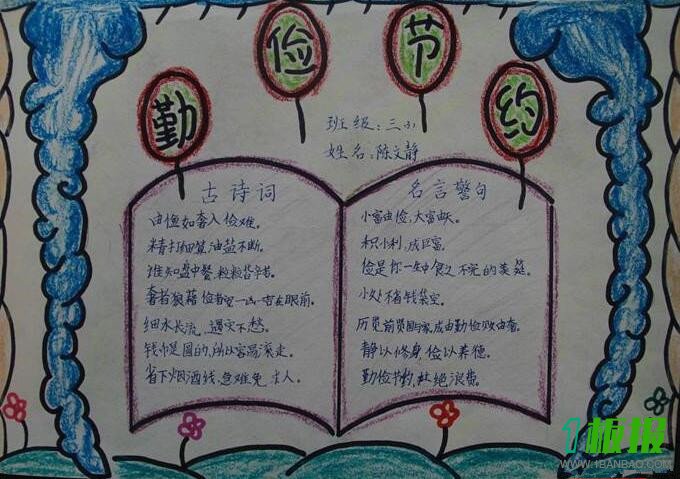 勤俭节约
班级:三(3)
姓名:陈文静
古诗词
由俭如奢入俭难。
精打细算,油盐不断。
谁知盘中餐,粒粒皆辛苦。
奢者狼藉俭者
在眼前。
细水长流,遇灾不愁。
钱币是圆的,所以容易滚走。
省下烟酒钱,急难免求人。
名言警句
小富由俭,大富由天。
积小利,成巨富。
俭是你一生中食之不完的美筵。
小处不省钱袋空。
历览前贤国与家,成由勤俭败由奢。
静以修身,俭以养德。
勤俭节约,杜绝浪费。
1板报
WWW.1BANBAO.COM